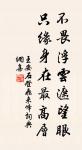 不畏浮雲遮望眼
只緣身在最高層
王安石登飛來峰詞典
網集